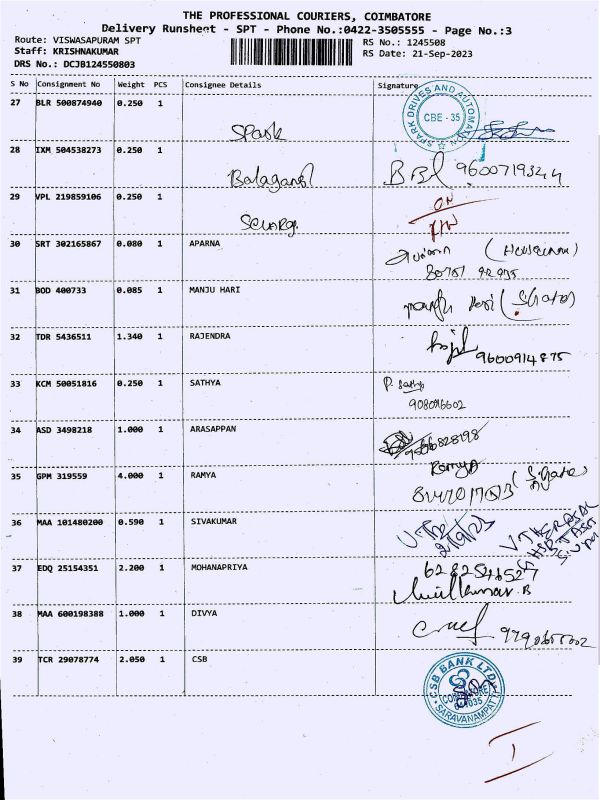 THE PROFESSIONAL COURIERS, COIMBATORE
Delivery Runsheet - SPT - Phone No.:0422-3505555 - Page No.:3
Route: VISWASAPURAM SPT RS No.: 1245508
Staff: KRISHNAKUMAR RS Date: 21-Sep-2023
DRS No.: DCJB124550803
S No Consignment No Weight PCS Consignee Details Signature
27 BLR 500874940 0.250 1
SPARK DRIVES AND AUTOMATION
CBE - 35
Spark
28 IXM 504538273 0.250 1
9600719344
29 VPL 219859106 0.250 1
30 SRT 302165867 0.080 1 APARNA
31 BOD 400733 0.085 1 MANJU HARI
32 TDR 5436511 1.340 1 RAJENDRA
9600914875
33 KCM 50051816 0.250 1 SATHYA
P. Sathya
34 ASD 3498218 1.000 1 ARASAPPAN
35 GPM 319559 4.000 1 RAMYA
Ramya
36 MAA 101480200 0.590 1 SIVAKUMAR
37 EDQ 25154351 2.200 1 MOHANAPRIYA
38 MAA 600198388 1.000 1 DIVYA
39 TCR 29078774 2.050 1 CSB
CSB BANK LTD.
COIMBATORE
641035
SARAVANAMPATTI